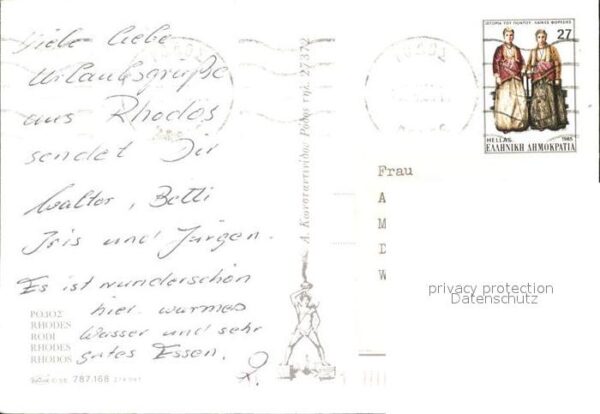 Viele liebe
Urlaubsgrüße
aus Rhodos
sendet Dir
Walter, Betti
Iris und Jürgen.
Es ist wunderschön
hier. warmes
Wasser und sehr
gutes Essen.
ΡΟΔΟΣ
RHODES
RODI
RHODES
RHODOS
787.168
Δ. Κωνσταντινίδης Ρόδος τηλ. 27372
ΙΣΤΟΡΙΑ ΤΟΥ ΠΟΝΤΟΥ
27
HELLAS 1985
ΕΛΛΗΝΙΚΗ ΔΗΜΟΚΡΑΤΙΑ
Frau
A
M
D
W
privacy protection
Datenschutz